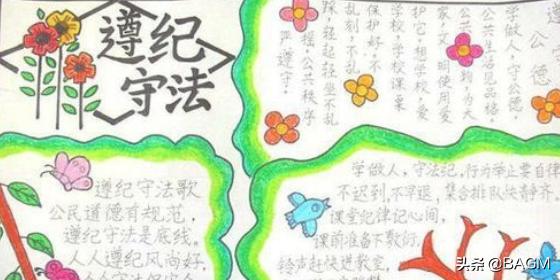 遵纪
守法
公德
学做人,公德,
公共生活见品格,
公物,为大
家,文明使用爱
护它,想学校,爱
学校,学校课桌
保护好,不
乱刻不乱
踩,轻起轻坐不乱
摇,公共秩序
严遵守.
遵纪守法歌
公民道德有规范,
遵纪守法是底线。
人人遵纪风尚好,
学做人,守法纪,行为举止要自律
不迟到,不早退,集合排队快静齐
课堂纪律记心间,
课前准备不敷衍.
铃声赶快进教室,
头条 @BAGM